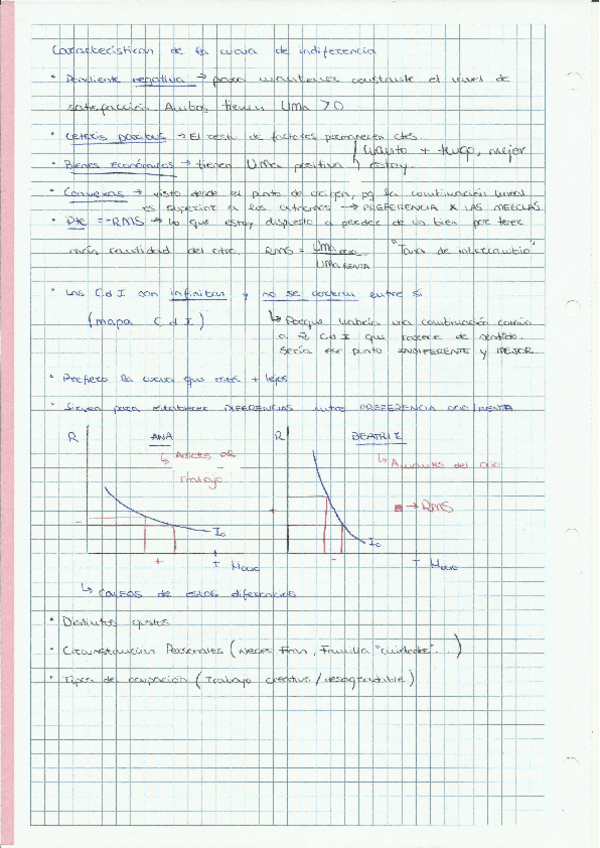 Características de la curva de indiferencia
• Pendiente negativa → para mantener constante el nivel de
satisfacción. Ambos tienen UMa > 0
• Ceteris paribus → El resto de factores permanecen ctes.
• Bienes económicos → tienen UMa positiva } cuanto + tengo, mejor estoy.
• Convexas → visto desde el punto de origen, pq la combinación lineal
es superior a los extremos → PREFERENCIA X LAS MEZCLAS
• Pte = -RMS → lo que estoy dispuesto a perder de un bien por tener
más cantidad del otro. RMS = UMa OCIO / UMa RENTA "Tasa de intercambio"
• Las C d I son infinitas y no se cortan entre sí
(mapa C d I) ↳ Porque habría una combinación común
a 2 C d I que carece de sentido.
Sería ese punto INDIFERENTE y MEJOR.
• Prefiero la curva que está + lejos
• Sirven para establecer DIFERENCIAS entre PREFERENCIA OCIO/RENTA
R ANA R BEATRIZ
↳ Adictos al trabajo
↳ Amantes del ocio
→ RMS
I₀
I₀
+ T H OCIO
- T H OCIO
↳ causas de estas diferencias
• Distintos gustos
• Circunstancias Personales (neces Finan, Familia "cuidados"...)
• Tipos de ocupación (Trabajo creativo/desagradable)